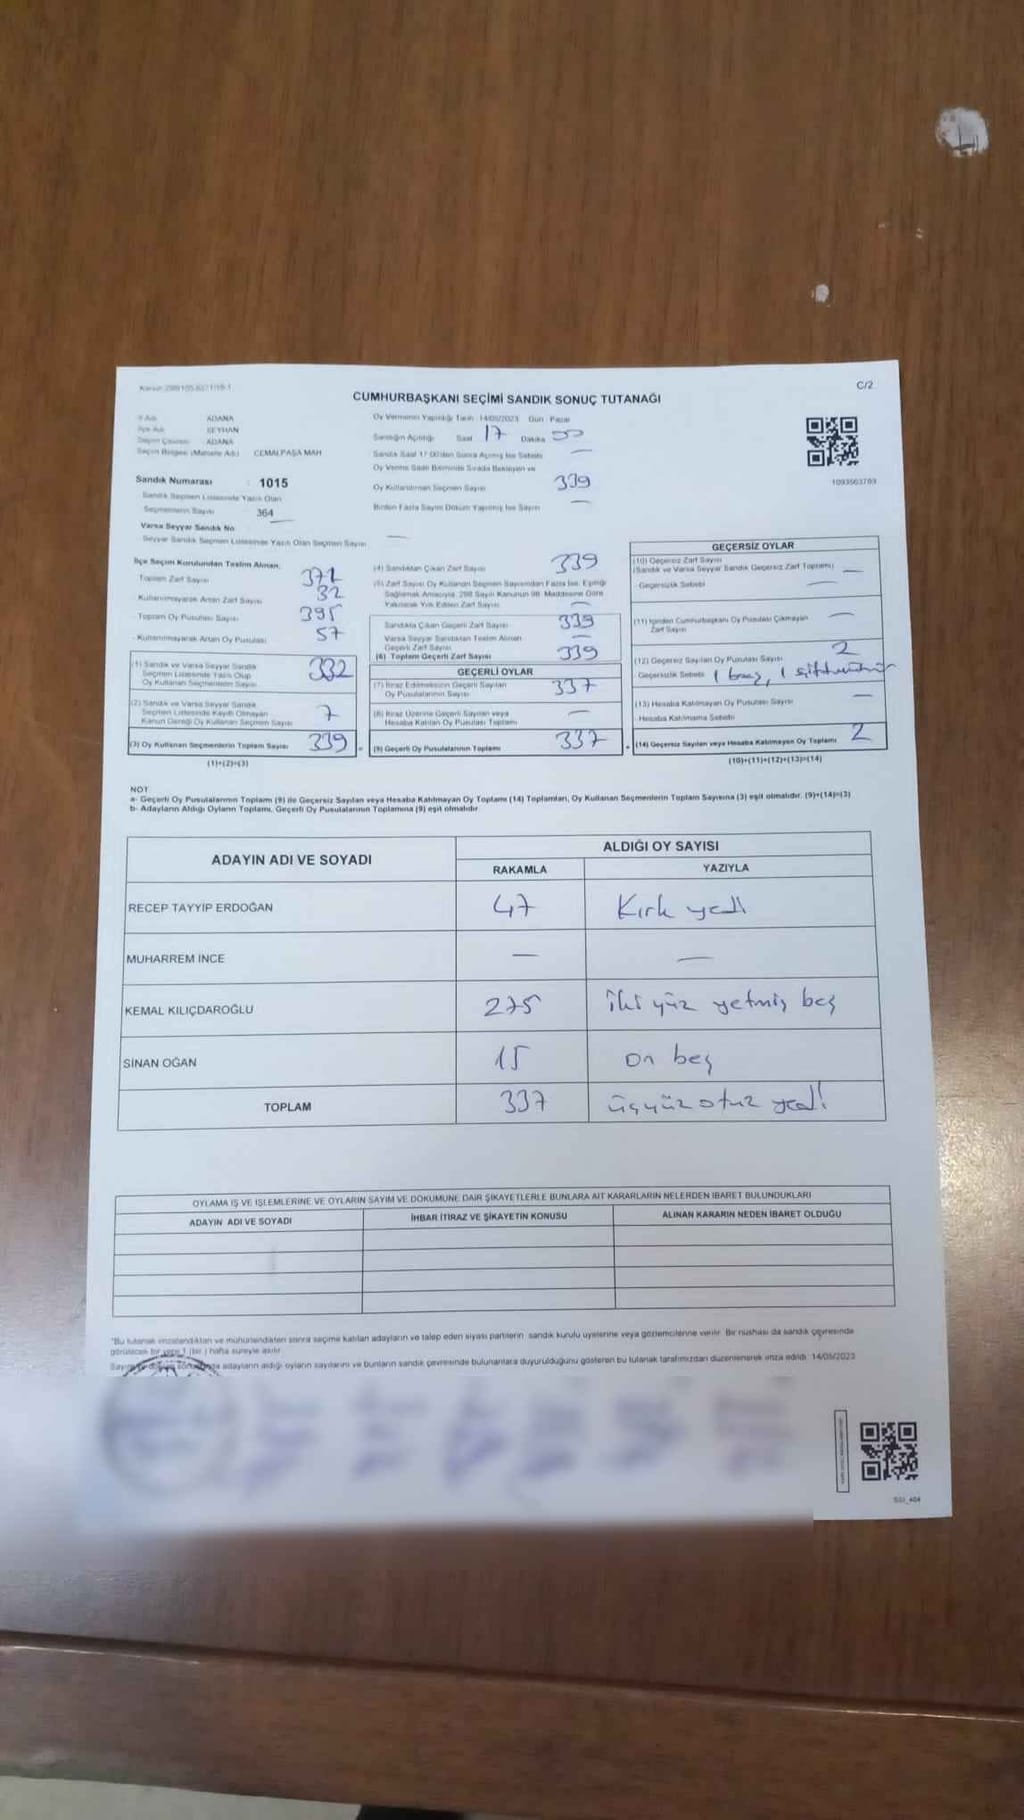 C/2
CUMHURBAŞKANI SEÇİMİ SANDIK SONUÇ TUTANAĞI
ADANA
SEYHAN
ADANA
CEMALPAŞA MAH
Sandık Numarası 1015
Sandık Seçmen Listesinde Yazılı Olan
Seçmenlerin Sayısı 364
Varsa Seyyar Sandık No
Seyyar Sandık Seçmen Listesinde Yazılı Olan Seçmen Sayısı —
Oy Vermenin Yapıldığı Tarih 14/05/2023 Gün Pazar
Sandığın Açıldığı Saat 17 Dakika
Sandık Saat 17:00'den Sonra Açılmış İse Sebebi —
Oy Verme Saati Bitiminde Sırada Bekleyen ve
Oy Kullandırılan Seçmen Sayısı 339
Birden Fazla Sayım Döküm Yapılmış İse Sayısı —
1093563703
İlçe Seçim Kurulundan Teslim Alınan:
Toplam Zarf Sayısı
Kullanılmayarak Artan Zarf Sayısı 32
Toplam Oy Pusulası Sayısı 395
Kullanılmayarak Artan Oy Pusulası 57
(1) Sandık ve Varsa Seyyar Sandık
Seçmen Listesinde Yazılı Olup
Oy Kullanan Seçmenlerin Sayısı 332
(2) Sandık ve Varsa Seyyar Sandık
Seçmen Listesinde Kayıtlı Olmayan
Kanun Gereği Oy Kullanan Seçmen Sayısı 7
(3) Oy Kullanan Seçmenlerin Toplam Sayısı 339
(1)+(2)=(3)
(4) Sandıktan Çıkan Zarf Sayısı 339
(5) Zarf Sayısı Oy Kullanan Seçmen Sayısından Fazla İse, Eşitliği
Sağlamak Amacıyla, 298 Sayılı Kanunun 98. Maddesine Göre
Yakılarak Yok Edilen Zarf Sayısı —
Sandıkta Çıkan Geçerli Zarf Sayısı 339
Varsa Seyyar Sandıktan Teslim Alınan
Geçerli Zarf Sayısı —
(6) Toplam Geçerli Zarf Sayısı 339
GEÇERLİ OYLAR
(7) İtiraz Edilmeksizin Geçerli Sayılan
Oy Pusulalarının Sayısı 337
(8) İtiraz Üzerine Geçerli Sayılan veya
Hesaba Katılan Oy Pusulası Toplamı —
(9) Geçerli Oy Pusulalarının Toplamı 337
GEÇERSİZ OYLAR
(10) Geçersiz Zarf Sayısı
(Sandık ve Varsa Seyyar Sandık Geçersiz Zarf Toplamı) —
Geçersizlik Sebebi —
(11) İçinden Cumhurbaşkanı Oy Pusulası Çıkmayan
Zarf Sayısı —
(12) Geçersiz Sayılan Oy Pusulası Sayısı 2
Geçersizlik Sebebi 1 boş, 1
(13) Hesaba Katılmayan Oy Pusulası Sayısı —
Hesaba Katılmama Sebebi
(14) Geçersiz Sayılan veya Hesaba Katılmayan Oy Toplamı 2
(10)+(11)+(12)+(13)=(14)
NOT
a- Geçerli Oy Pusulalarının Toplamı (9) ile Geçersiz Sayılan veya Hesaba Katılmayan Oy Toplamı (14) Toplamları, Oy Kullanan Seçmenlerin Toplam Sayısına (3) eşit olmalıdır. (9)+(14)=(3)
b- Adayların Aldığı Oyların Toplamı, Geçerli Oy Pusulalarının Toplamına (9) eşit olmalıdır.
ADAYIN ADI VE SOYADI ALDIĞI OY SAYISI
RAKAMLA YAZIYLA
RECEP TAYYİP ERDOĞAN 47 Kırk yedi
MUHARREM İNCE — —
KEMAL KILIÇDAROĞLU 275 iki yüz yetmiş beş
SİNAN OĞAN 15 on beş
TOPLAM 337 üçyüz otuz yedi
OYLAMA İŞ VE İŞLEMLERİNE VE OYLARIN SAYIM VE DÖKÜMÜNE DAİR ŞİKAYETLERLE BUNLARA AİT KARARLARIN NELERDEN İBARET BULUNDUKLARI
ADAYIN ADI VE SOYADI İHBAR İTİRAZ VE ŞİKAYETİN KONUSU ALINAN KARARIN NEDEN İBARET OLDUĞU
*Bu tutanak imzalandıktan ve mühürlendikten sonra seçime katılan adayların ve talep eden siyasi partilerin sandık kurulu üyelerine veya gözlemcilerine verilir. Bir nüshası da sandık çevresinde
görülecek bir yere 1 (bir) hafta süreyle asılır.
adayların aldığı oyların sayılarını ve bunların sandık çevresinde bulunanlara duyurulduğunu gösteren bu tutanak tarafımızdan düzenlenerek imza edildi. 14/05/2023